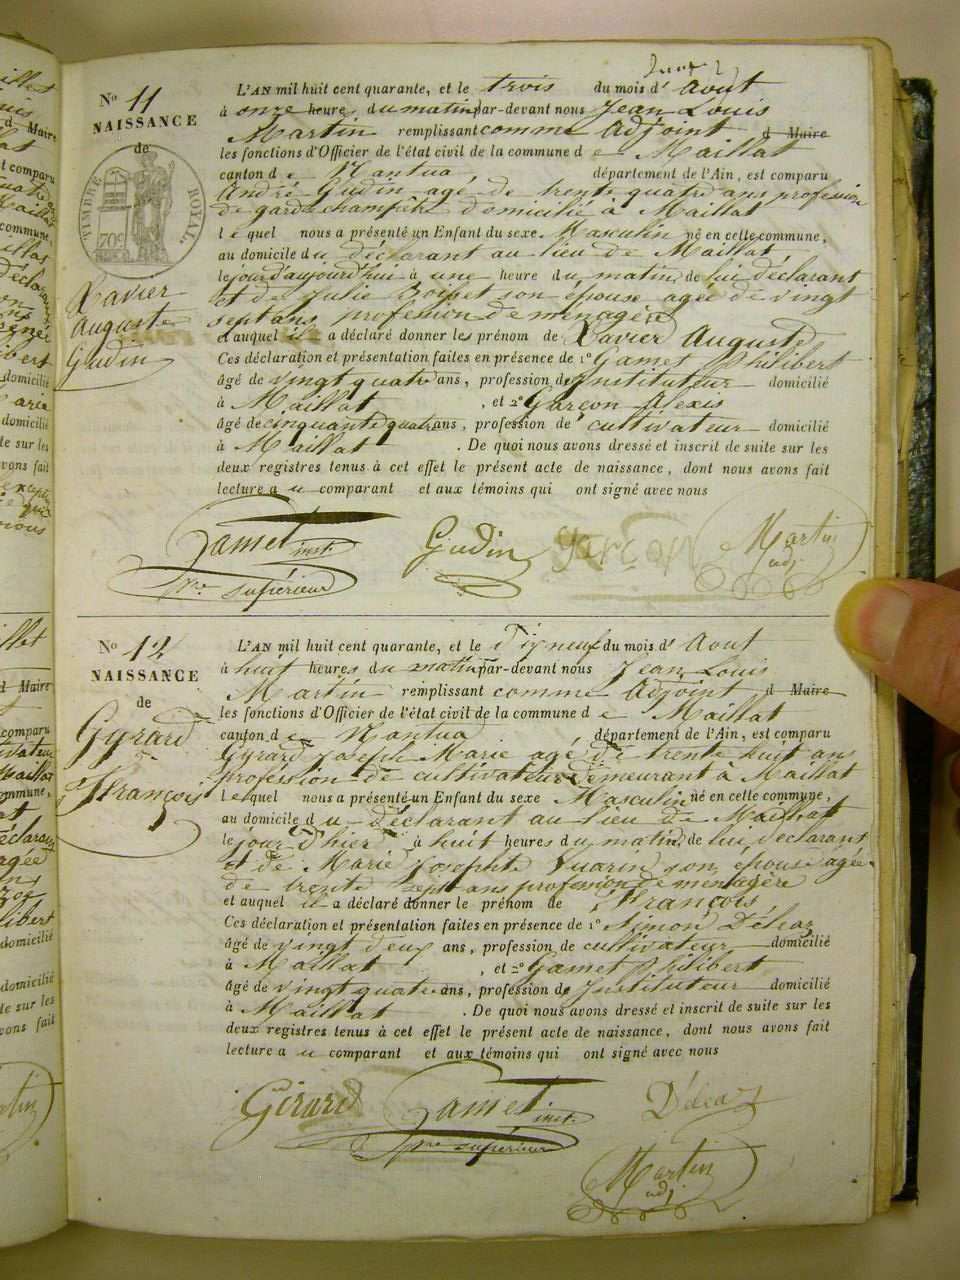 N.º 11
NAISSANCE
de
TIMBRE ROYAL.
70c
Xavier
Auguste
Gudin
L'AN mil huit cent quarante, et le trois du mois d' Aout
à onze heures du matin par-devant nous Jean Louis
Martin remplissant comme Adjoint d Maire
les fonctions d'Officier de l'état civil de la commune de Maillat
canton de Nantua, département de l'Ain, est comparu
André Gudin agé de trente quatre ans profession
de garde champêtre domicilié à Maillat
lequel nous a présenté un Enfant du sexe Masculin né en cette commune,
au domicile du déclarant au lieu de Maillat,
le jour d'aujourd'hui à une heure du matin, de lui déclarant
et de Julie son épouse agée de vingt
sept ans profession de menagère
et auquel il a déclaré donner les prénom de Xavier Auguste
Ces déclaration et présentation faites en présence de 1º Gamet Philibert
âgé de vingt quatre ans, profession de Instituteur domicilié
à Maillat, et 2º Garçon Alexis
âgé de cinquante quatre ans, profession de cultivateur domicilié
à Maillat. De quoi nous avons dressé et inscrit de suite sur les
deux registres tenus à cet effet le présent acte de naissance, dont nous avons fait
lecture au comparant et aux témoins qui ont signé avec nous
Gamet inst. Gudin Garçon Martin
pre supérieur adj.
N.º 12
NAISSANCE
de
Gyrard
François
L'AN mil huit cent quarante, et le Dix neuf du mois d' Aout
à huit heures du matin par-devant nous Jean Louis
Martin remplissant comme Adjoint d Maire
les fonctions d'Officier de l'état civil de la commune de Maillat
canton de Nantua département de l'Ain, est comparu
Gyrard Joseph Marie agé de trente huit ans
profession de cultivateur demeurant à Maillat
lequel nous a présenté un Enfant du sexe Masculin né en cette commune,
au domicile du déclarant au lieu de Maillat
le jour d'hier à huit heures du matin, de lui déclarant
et de Marie Josephte Vuarin son épouse agée
de trente sept ans profession de menagère
et auquel il a déclaré donner le prénom de François,
Ces déclaration et présentation faites en présence de 1º Simon Déléaz
âgé de vingt deux ans, profession de cultivateur domicilié
à Maillat, et 2º Gamet Philibert
âgé de vingt quatre ans, profession de Instituteur domicilié
à Maillat. De quoi nous avons dressé et inscrit de suite sur les
deux registres tenus à cet effet le présent acte de naissance, dont nous avons fait
lecture au comparant et aux témoins qui ont signé avec nous
Girard Gamet inst. Déléaz
pre supérieur
Martin
adj.